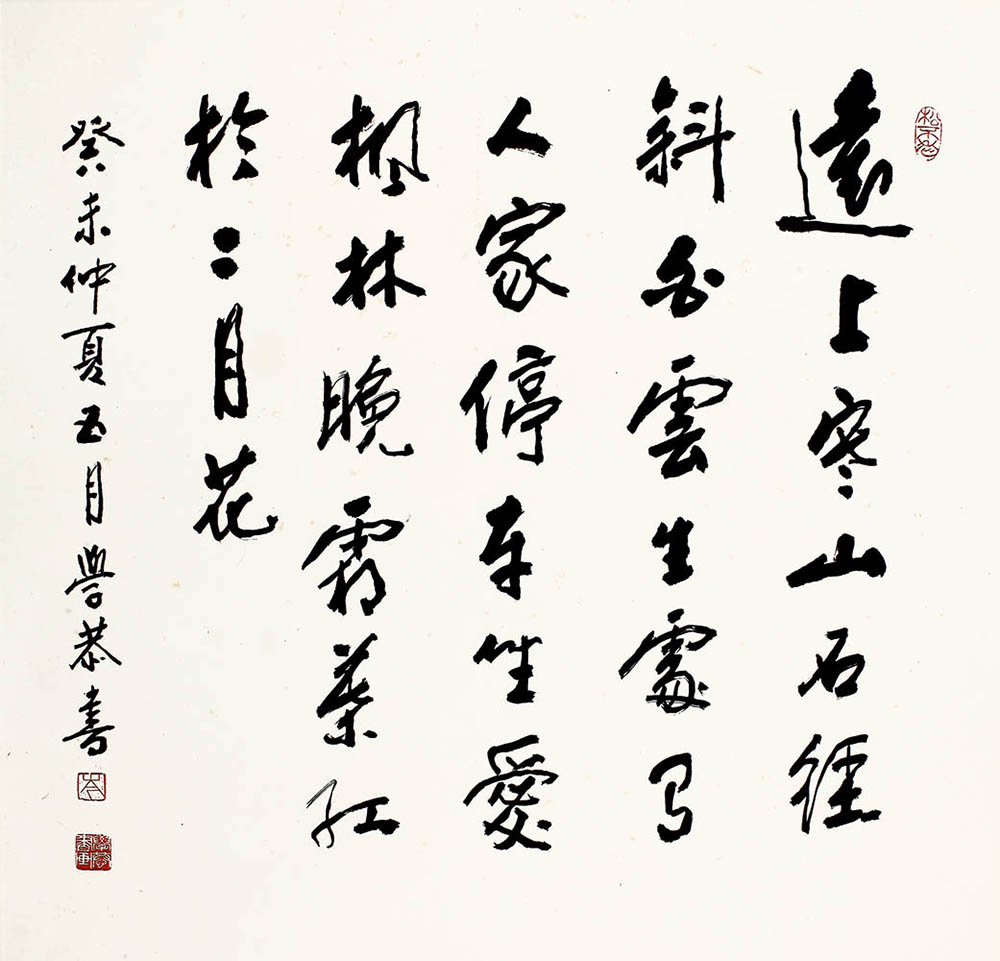 遠上寒山石徑
斜白雲生處有
人家停車坐愛
楓林晚霜葉紅
於二月花
癸未仲夏五月學恭書
岑